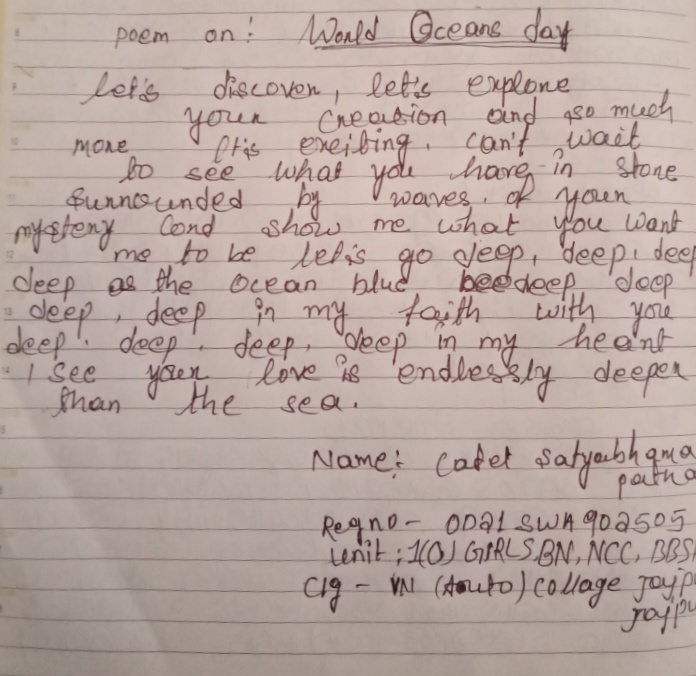 poem on: World Oceans day
let's discover, let's explore
your creation and so much
more It is exciting. can't wait
to see what you have in store
surrounded by waves. of your
mystery Cond show me what you want
me to be let's go deep, deep, deep
deep as the ocean blue deep deep
deep, deep in my faith with you
deep. deep. deep, deep in my heart
I see your love is endlessly deeper
than the sea.
Name: Cadet Satyabhama
patna
Regno - OD21SWA902505
Unit: 1(O) GIRLS, BN, NCC, BBS
Clg - VN (Auto) Collage Jajpu
Jajpu